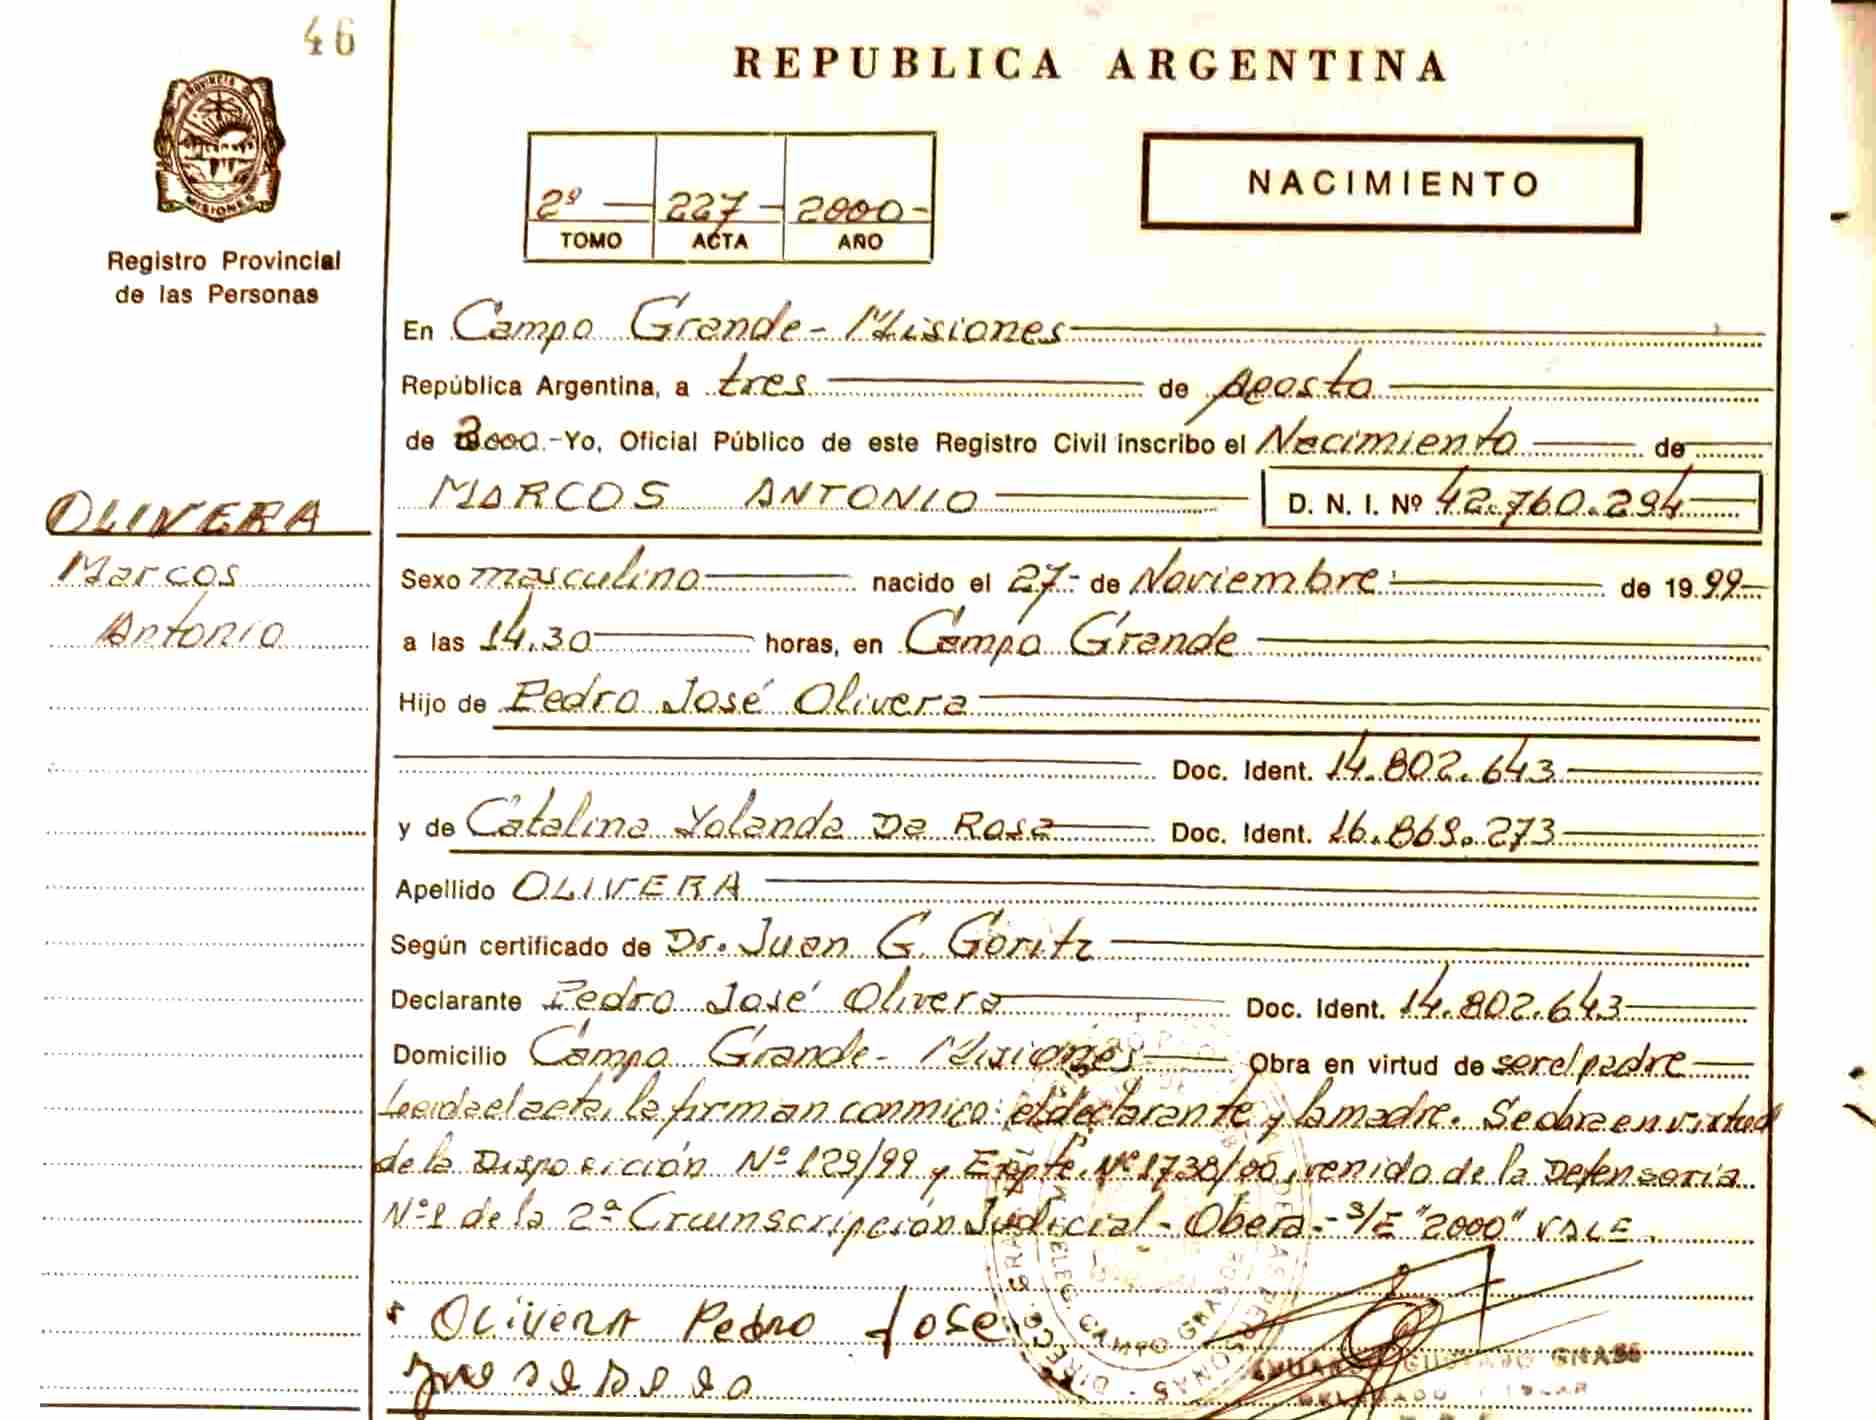 46
REPUBLICA ARGENTINA
PROVINCIA DE
MISIONES
Registro Provincial
de las Personas
2º 227 2000
TOMO ACTA AÑO
NACIMIENTO
En Campo Grande - Misiones
República Argentina, a tres de Agosto
de 2000.- Yo, Oficial Público de este Registro Civil inscribo el Nacimiento de
MARCOS ANTONIO D. N. I. Nº 42.760.294
OLIVERA
Marcos
Antonio
Sexo masculino nacido el 27- de Noviembre de 1999
a las 14.30 horas, en Campo Grande
Hijo de Pedro José Olivera
Doc. Ident. 14.802.643
y de Catalina Yolanda Da Rosa Doc. Ident. 16.869.273
Apellido OLIVERA
Según certificado de Dr. Juan G. Goritz
Declarante Pedro José Olivera Doc. Ident. 14.802.643
Domicilio Campo Grande - Misiones Obra en virtud de ser el padre
Leida el acta, la firman conmigo: el declarante y la madre. Se obra en virtud
de la Disposición Nº 129/99 y Expte. Nº 1738/00, venido de la Defensoria
Nº1 de la 2ª Circunscripción Judicial - Obera.- S/E "2000" VALE.
OLIVERA Pedro Jose
GUSTAVO
DELEGADO TITULAR